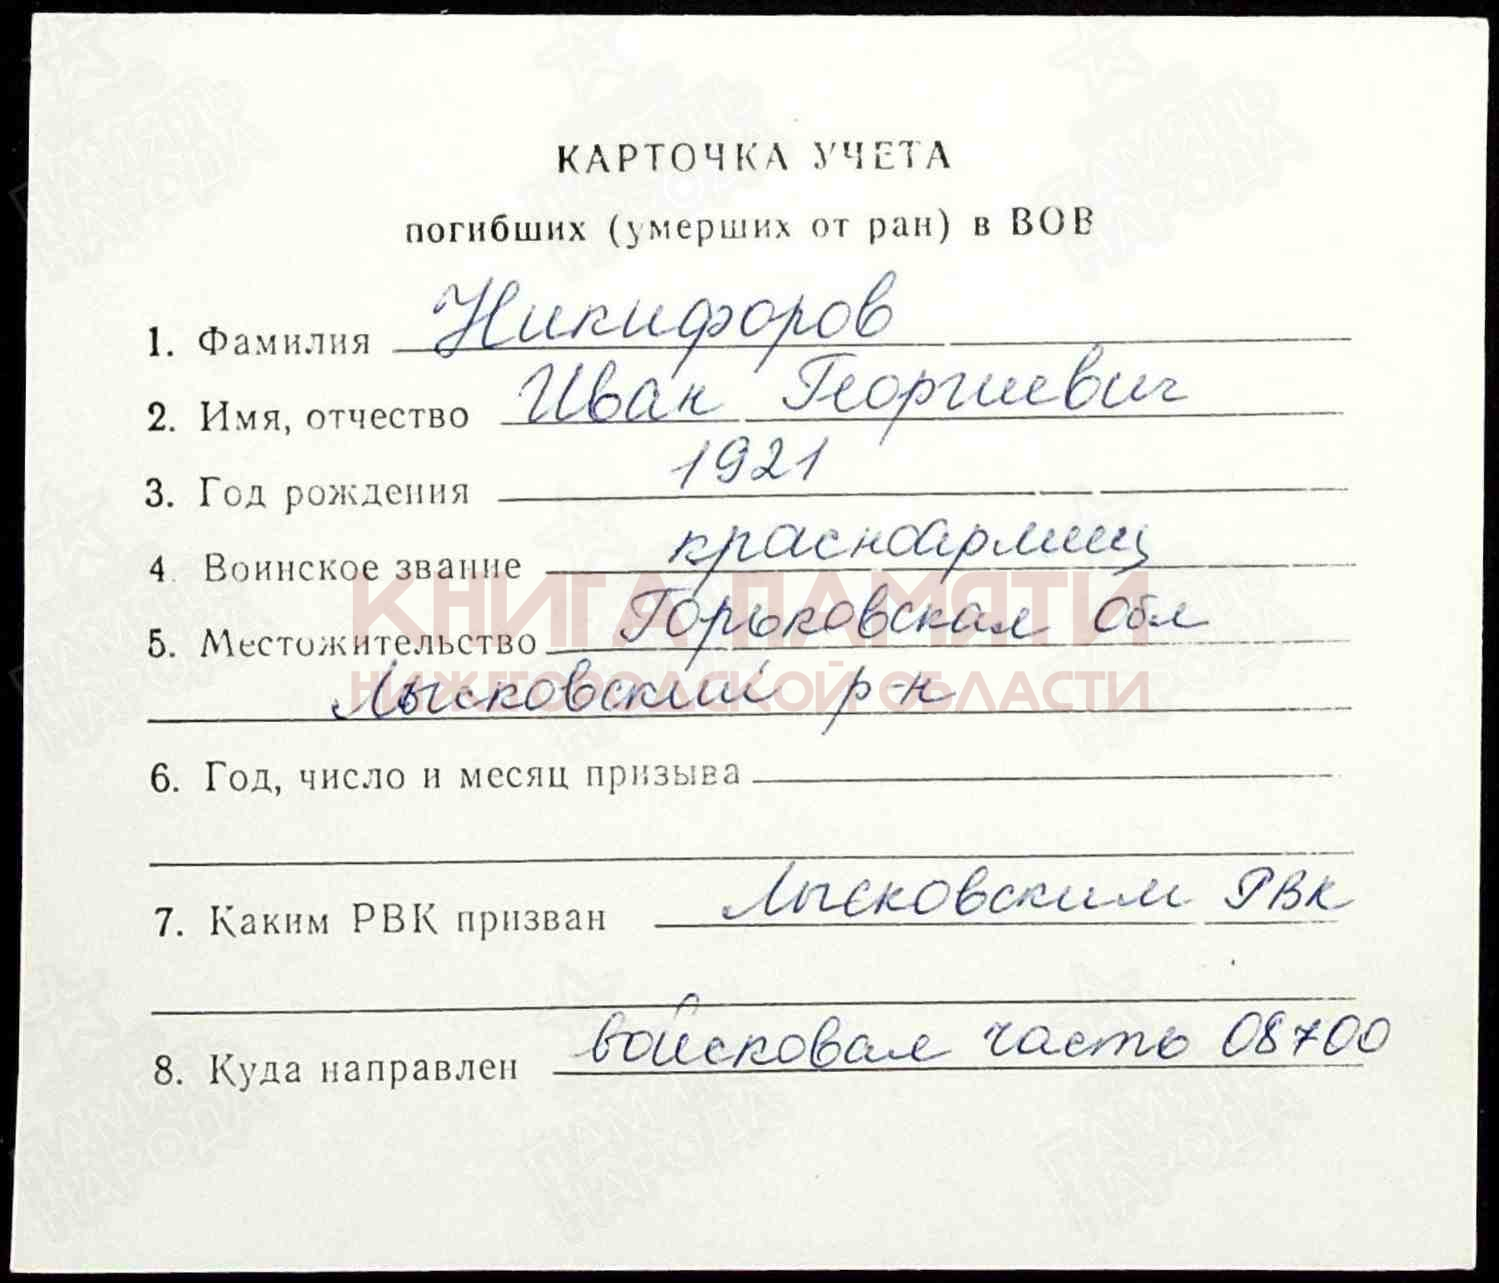 КАРТОЧКА УЧЕТА
погибших (умерших от ран) в ВОВ
1. Фамилия Никифоров
2. Имя, отчество Иван Георгиевич
3. Год рождения 1921
4. Воинское звание красноармеец
5. Местожительство Горьковская обл
Лысковский р-н
6. Год, число и месяц призыва
7. Каким РВК призван Лысковским РВК
8. Куда направлен войсковая часть 08700
КНИГА ПАМЯТИ
НИЖЕГОРОДСКОЙ ОБЛАСТИ
ПАМЯТЬ
НАРОДА